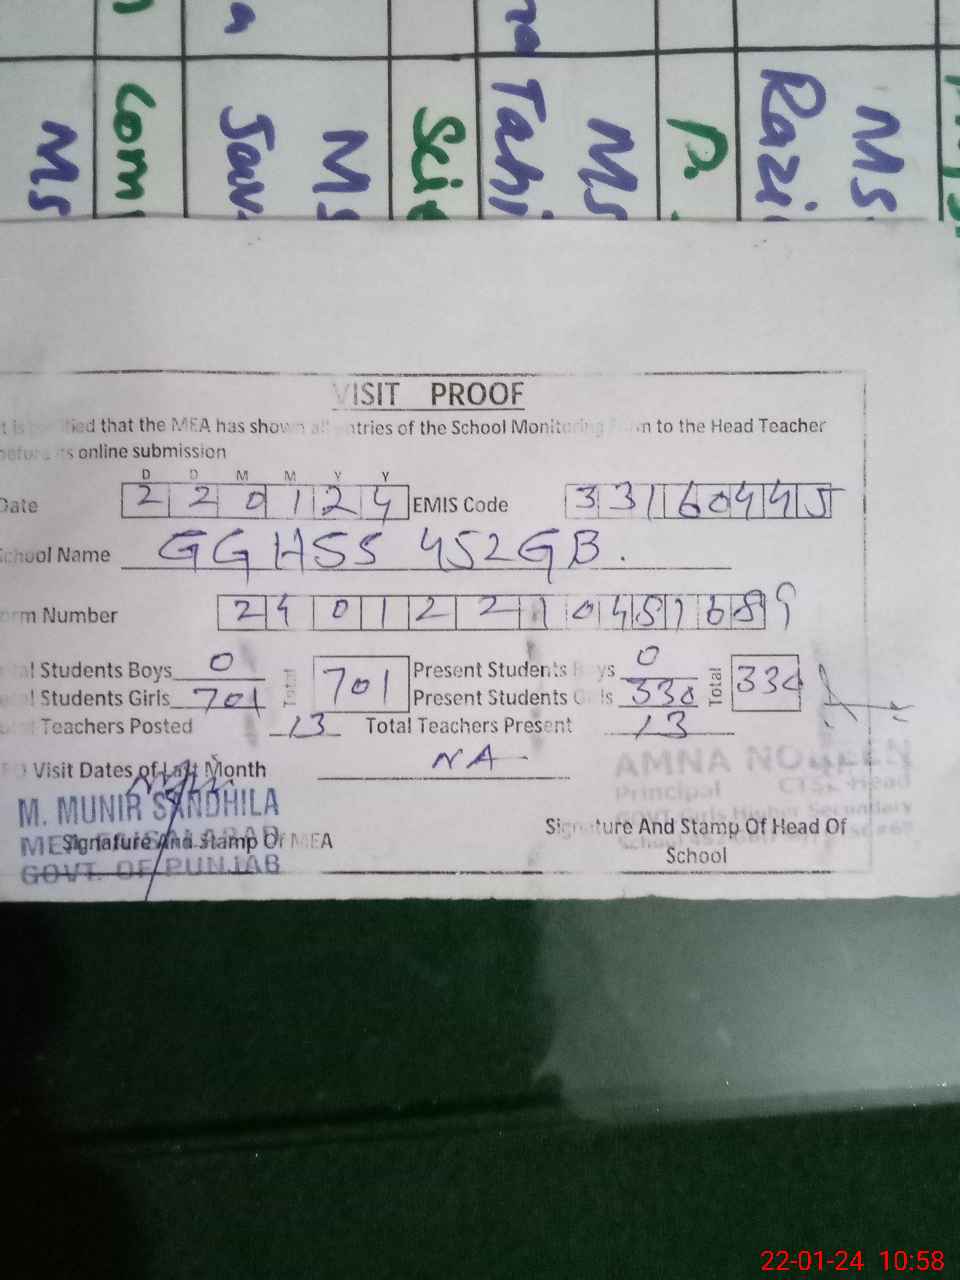 Ms
Com
Jav
Ms
Sci
Tahi
Ms
P.
Razi
Ms
VISIT PROOF
that the MEA has shown all entries of the School Monitoring Form to the Head Teacher
before its online submission
D D M M Y Y
Date 2 2 0 1 2 4 EMIS Code 3 3 1 6 0 4 4 5
School Name GGHSS 452GB.
Form Number 2 4 0 1 2 2 1 0 4 5 1 6 8 9
Students Boys 0 Total 701 Present Students Boys 0 Total 330
Students Girls 701 Present Students Girls 330
Teachers Posted 13 Total Teachers Present 13
Visit Dates of Last Month NA
M. MUNIR SANDHILA
MEA FAISALABAD
GOVT. OF PUNJAB
Signature And Stamp Of MEA
AMNA NOUREEN
Principal
Signature And Stamp Of Head Of
School
22-01-24 10:58